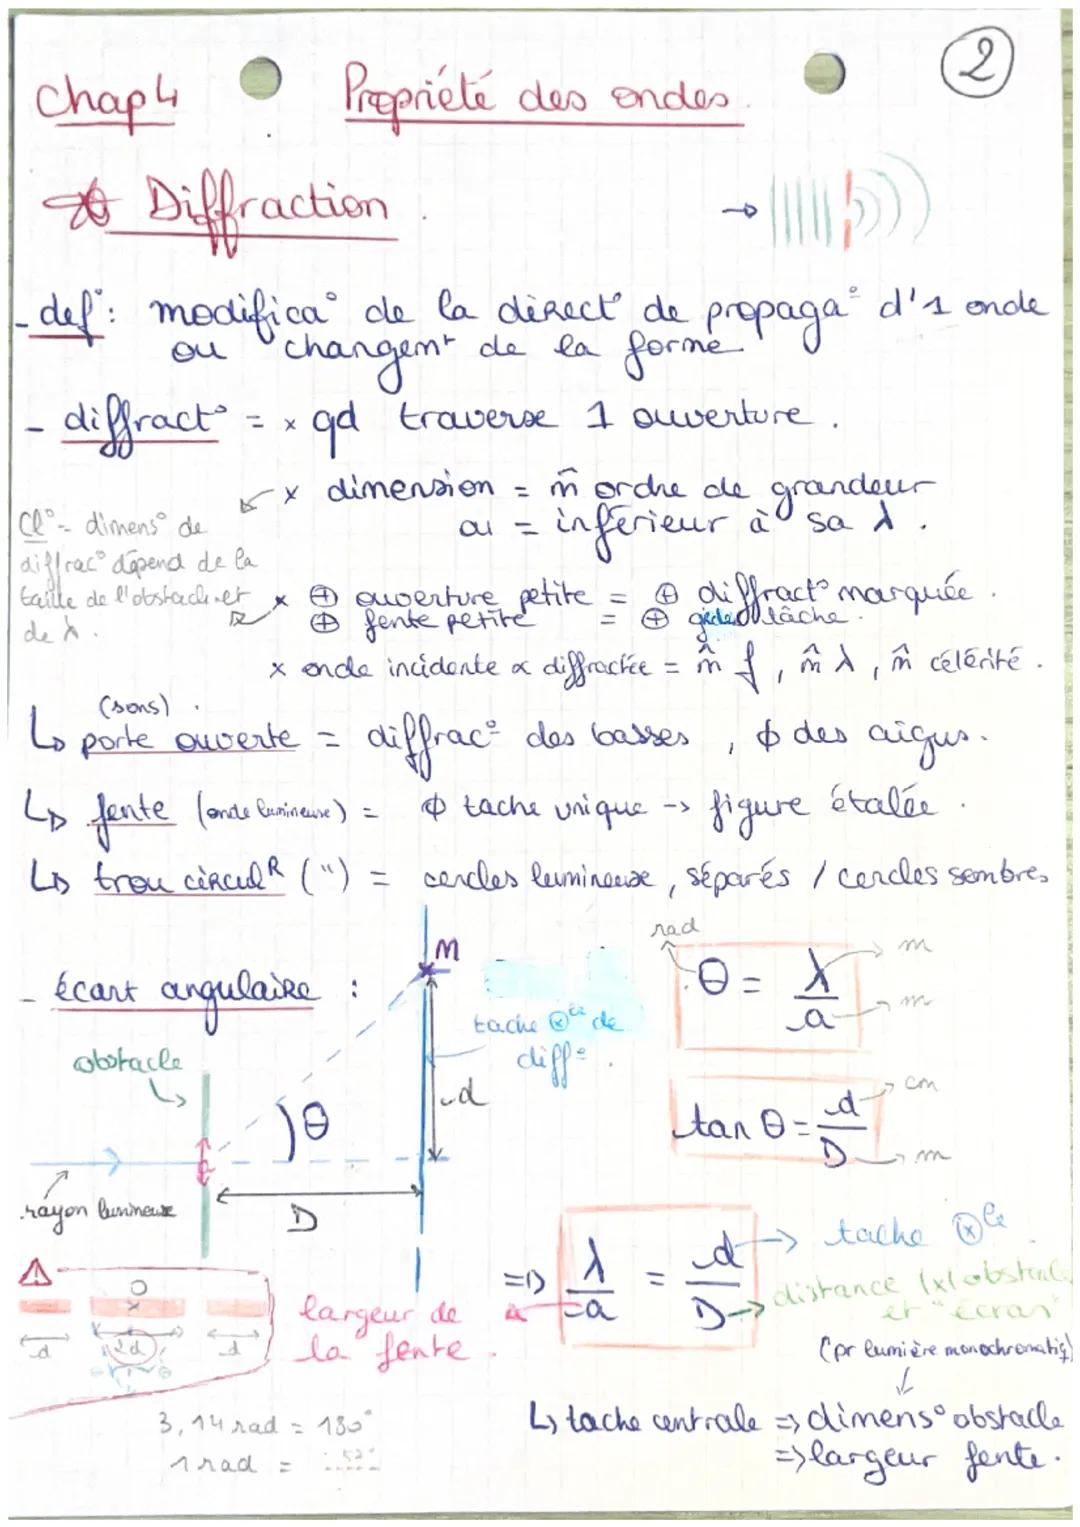 2
Chap 4 Propriété des ondes.
Diffraction.
- def°: modifica° de la direct° de propaga° d'1 onde
ou changemt de la forme
- diffract° = x qd traverse 1 ouverture.
x dimension = m̂ ordre de grandeur
ou = inférieur à sa λ.
Cl° = dimens° de
diffrac° dépend de la
taille de l'obstacle et
de λ.
x ⊕ ouverture petite = ⊕ diffract° marquée.
⊕ fente petite = ⊕ tâche.
x onde incidente & diffractée = m̂ f, m̂ λ, m̂ célérité.
(sons)
↳ porte ouverte = diffrac° des basses, ϕ des aigus.
↳ fente (onde lumineuse) = ϕ tache unique -> figure étalée.
↳ trou circulR (") = cercles lumineux, séparés / cercles sombres
- écart angulaire :
M
obstacle
θ
d
D
rayon lumineux
tache ⊗le de
diff°.
rad
θ = λ/a
m
m
tan θ = d/D
cm
m
=> λ/a = d/D
-> tache ⊗le
-> distance (x) obstacle
et "écran"
largeur de
la fente.
(pr lumière monochromatiq)
⚠
O
x
d 2d d
3,14 rad = 180°
1 rad =
↳ tache centrale => dimens° obstacle
=> largeur fente.